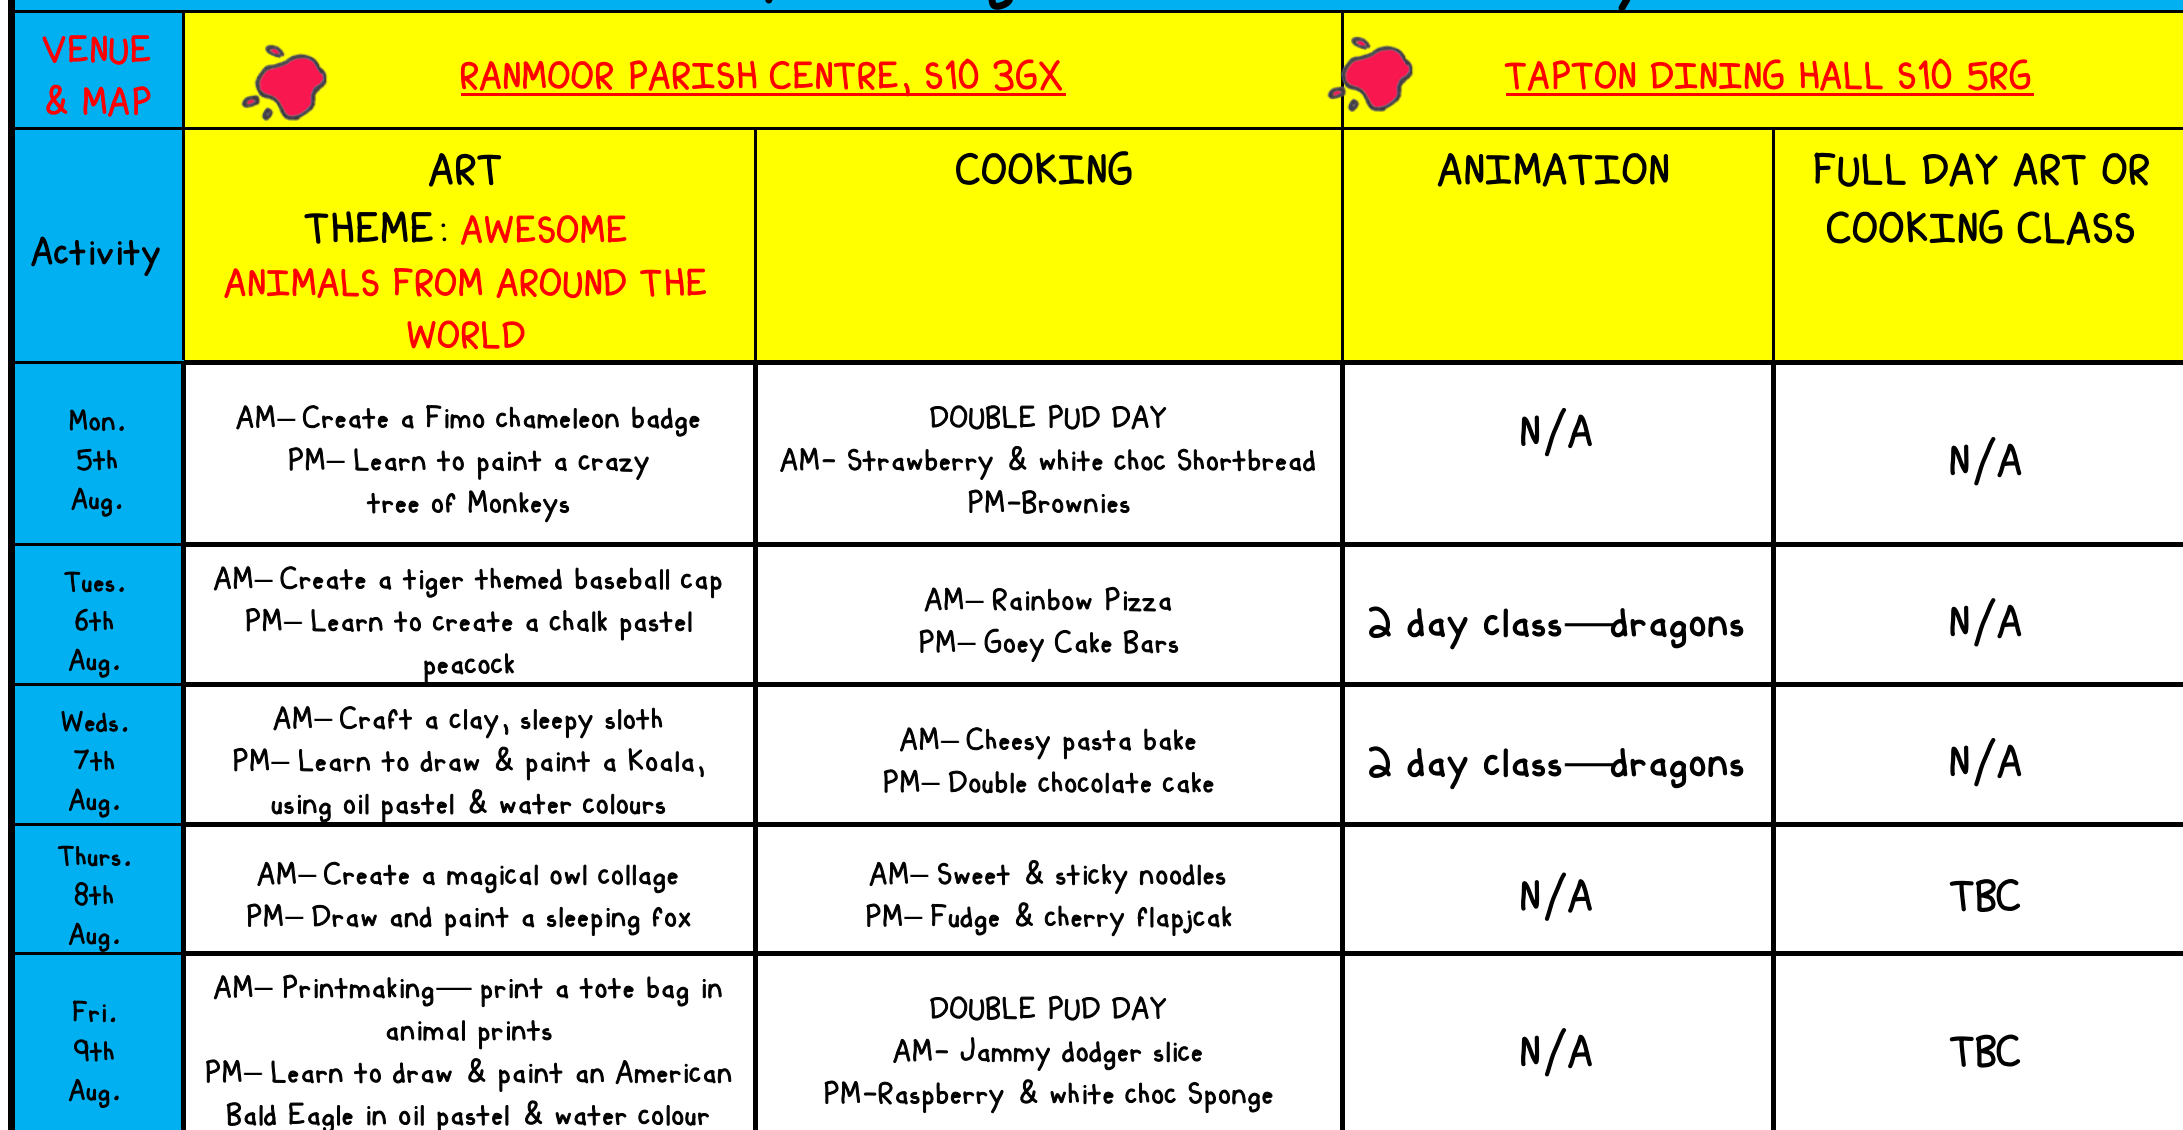 VENUE
& MAP
RANMOOR PARISH CENTRE, S10 3GX
TAPTON DINING HALL S10 5RG
Activity
ART
THEME: AWESOME
ANIMALS FROM AROUND THE
WORLD
COOKING
ANIMATION
FULL DAY ART OR
COOKING CLASS
Mon.
5th
Aug.
AM– Create a Fimo chameleon badge
PM– Learn to paint a crazy
tree of Monkeys
DOUBLE PUD DAY
AM- Strawberry & white choc Shortbread
PM-Brownies
N/A
N/A
Tues.
6th
Aug.
AM– Create a tiger themed baseball cap
PM– Learn to create a chalk pastel
peacock
AM– Rainbow Pizza
PM– Goey Cake Bars
2 day class—dragons
N/A
Weds.
7th
Aug.
AM– Craft a clay, sleepy sloth
PM– Learn to draw & paint a Koala,
using oil pastel & water colours
AM– Cheesy pasta bake
PM– Double chocolate cake
2 day class—dragons
N/A
Thurs.
8th
Aug.
AM– Create a magical owl collage
PM– Draw and paint a sleeping fox
AM– Sweet & sticky noodles
PM– Fudge & cherry flapjcak
N/A
TBC
Fri.
9th
Aug.
AM– Printmaking— print a tote bag in
animal prints
PM– Learn to draw & paint an American
Bald Eagle in oil pastel & water colour
DOUBLE PUD DAY
AM- Jammy dodger slice
PM-Raspberry & white choc Sponge
N/A
TBC